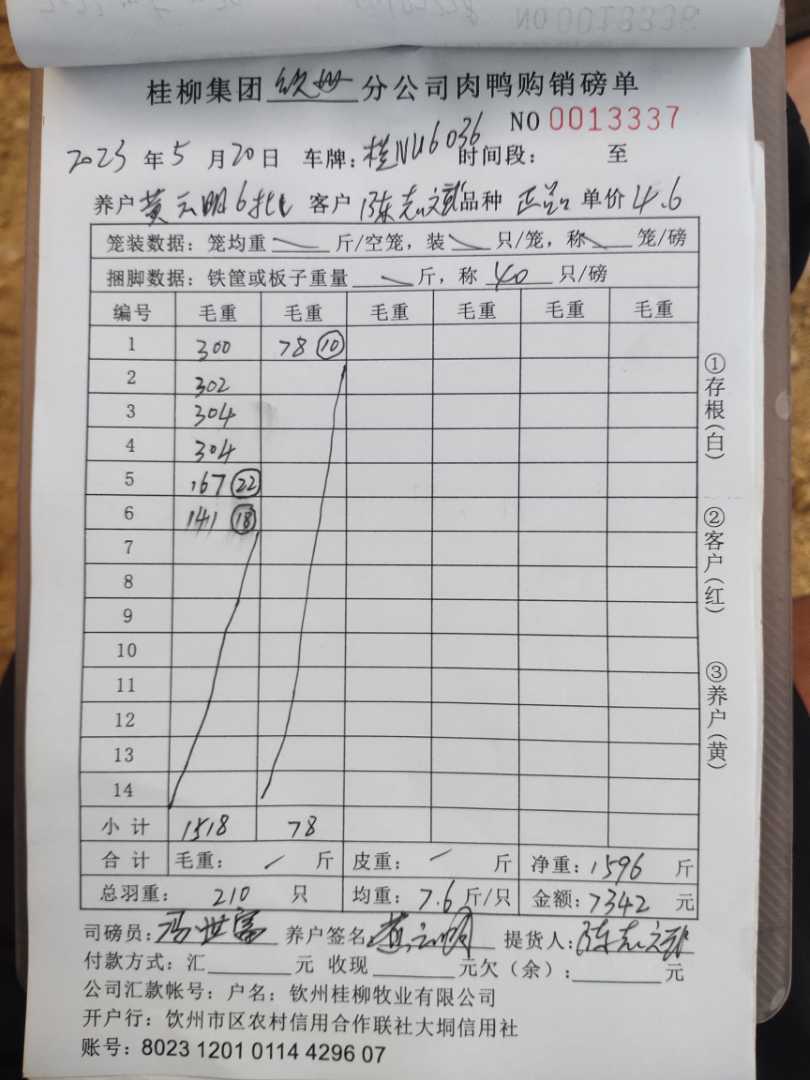 桂柳集团 钦州 分公司肉鸭购销磅单
NO 0013337
2023 年 5 月 20 日 车牌: 桂NU6036 时间段: 至
养户 黄云明6批 客户 陈志斌 品种 正品 单价 4.6
笼装数据: 笼均重 斤/空笼, 装 只/笼, 称 笼/磅
捆脚数据: 铁筐或板子重量 斤, 称 40 只/磅
编号 毛重 毛重 毛重 毛重 毛重 毛重
1 300 78 ⑩
2 302
3 304
4 304
5 167 ㉒
6 141 ⑱
7
8
9
10
11
12
13
14
小 计 1518 78
合 计 毛重: 斤 皮重: 斤 净重: 1596 斤
总羽重: 210 只 均重: 7.6 斤/只 金额: 7342 元
司磅员: 冯世富 养户签名 黄云明 提货人: 陈志斌
付款方式: 汇 元 收现 元欠(余): 元
公司汇款帐号: 户名: 钦州桂柳牧业有限公司
开户行: 饮州市区农村信用合作联社大垌信用社
账号: 8023 1201 0114 4296 07
①存根(白)
②客户(红)
③养户(黄)